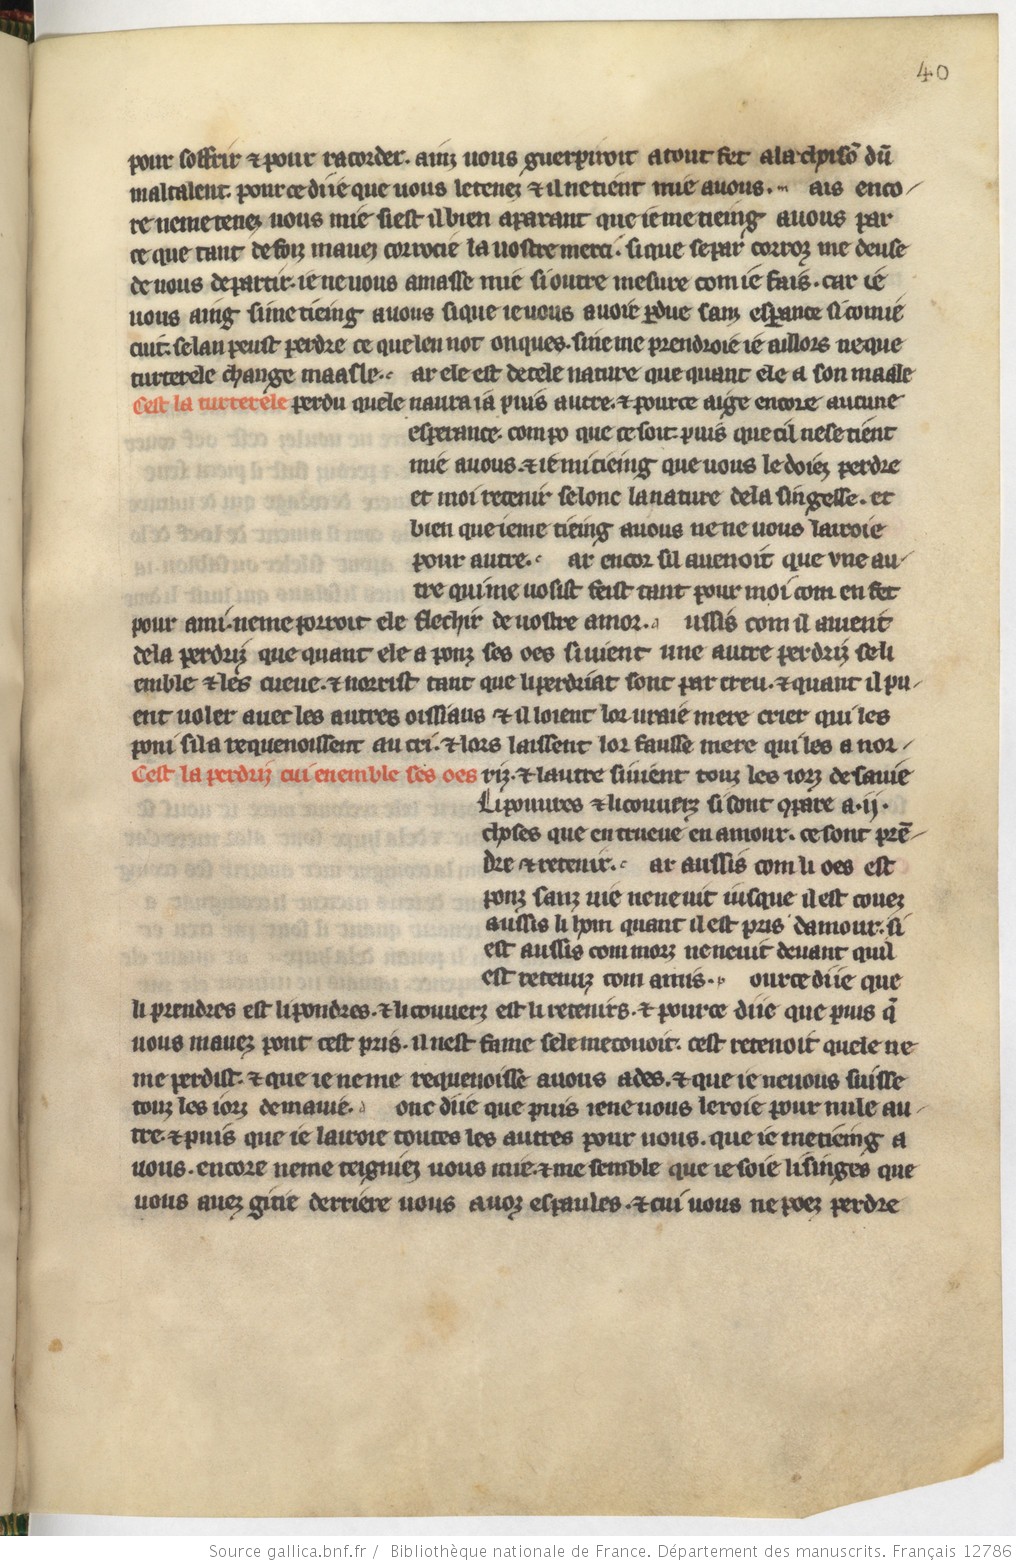 40
pour soffrir ⁊ pour racorder. ainz uous guerpiroit a tout fet a la choiso̅ du̅
maltalent. pour ce di ie que uous le tenez ⁊ il ne tient mie a uous. ais enco
re ne me tenez uous mie si est il bien aparant que ie me tieing a uous par
ce que tant de foiz mauez corrocie la uostre merci. si que se par corroz me deuse
de uous departir. ie ne uous amasse mie si outre mesure com ie fais. car ie
uous aing si me tieing a uous si que ie uous auoie perdue sanz esperance si com ie
cuit. se lan peust perdre ce que len not onques. si ne me prendroie ie aillors ne que
turterele change maasle. ar ele est de tele nature que quant ele a son maasle
Cest la turterele perdu quele naura ia puis autre. ⁊ pour ce aige encore aucune
esperance. com po que ce soit. puis que cil ne se tient
mie a uous. ⁊ ie mi tieing que uous le doiez perdre
et moi retenir selonc la nature de la singesse. et
bien que ie me tieing a uous ne ne uous lairoie
pour autre. ar encor sil auenoit que vne au
tre qui me uosist feist tant pour moi com en fet
pour ami. ne me porroit ele flechir de uostre amor. ussis com il auient
de la perdriz que quant ele a ponz ses oes si uient une autre perdriz se li
emble ⁊ les cueue. ⁊ norrist tant que li perdriat sont par creu. ⁊ quant il pu
ent uoler auec les autres oissiaus ⁊ il loient lor uraie mere crier qui les
poni si la requenoissent au cri. ⁊ lors laissent lor fausse mere qui les a nor
Cest la perdriz cui en emble ses oes riz. ⁊ lautre siuient touz les iorz de sa uie
Li ponures ⁊ li couuerz si sont ꝯpare a .ij.
choses que en trueue en amour. ce sont pre̅
dre ⁊ retenir. ar aussis com li oes est
ponz sanz uie ne ne uit iusque il est couez
aussis li hom quant il est pris damour. si
est aussis com morz ne ne uit deuant quil
est retenuz com amis. our ce di ie que
li prendres est li pondres. ⁊ li couuerz est li retenirs. ⁊ pour ce di ie que puis q̅
uous mauez pont cest pris. il nest fame sele me couoit. cest retenoit quele ne
me perdist. ⁊ que ie ne me requenoisse a uous ades. ⁊ que ie ne uous suisse
touz les iorz de ma uie. onc di ie que puis ie ne uous leroie pour nule au
tre. ⁊ puis que ie lairoie toutes les autres pour uous. que ie me tieing a
uous. encore ne me teigniez uous mie. ⁊ me semble que ie soie li singes que
uous auez gitie derriere uous a uoz espaules. ⁊ cui uous ne poez perdre
Source gallica.bnf.fr / Bibliothèque nationale de France. Département des manuscrits. Français 12786